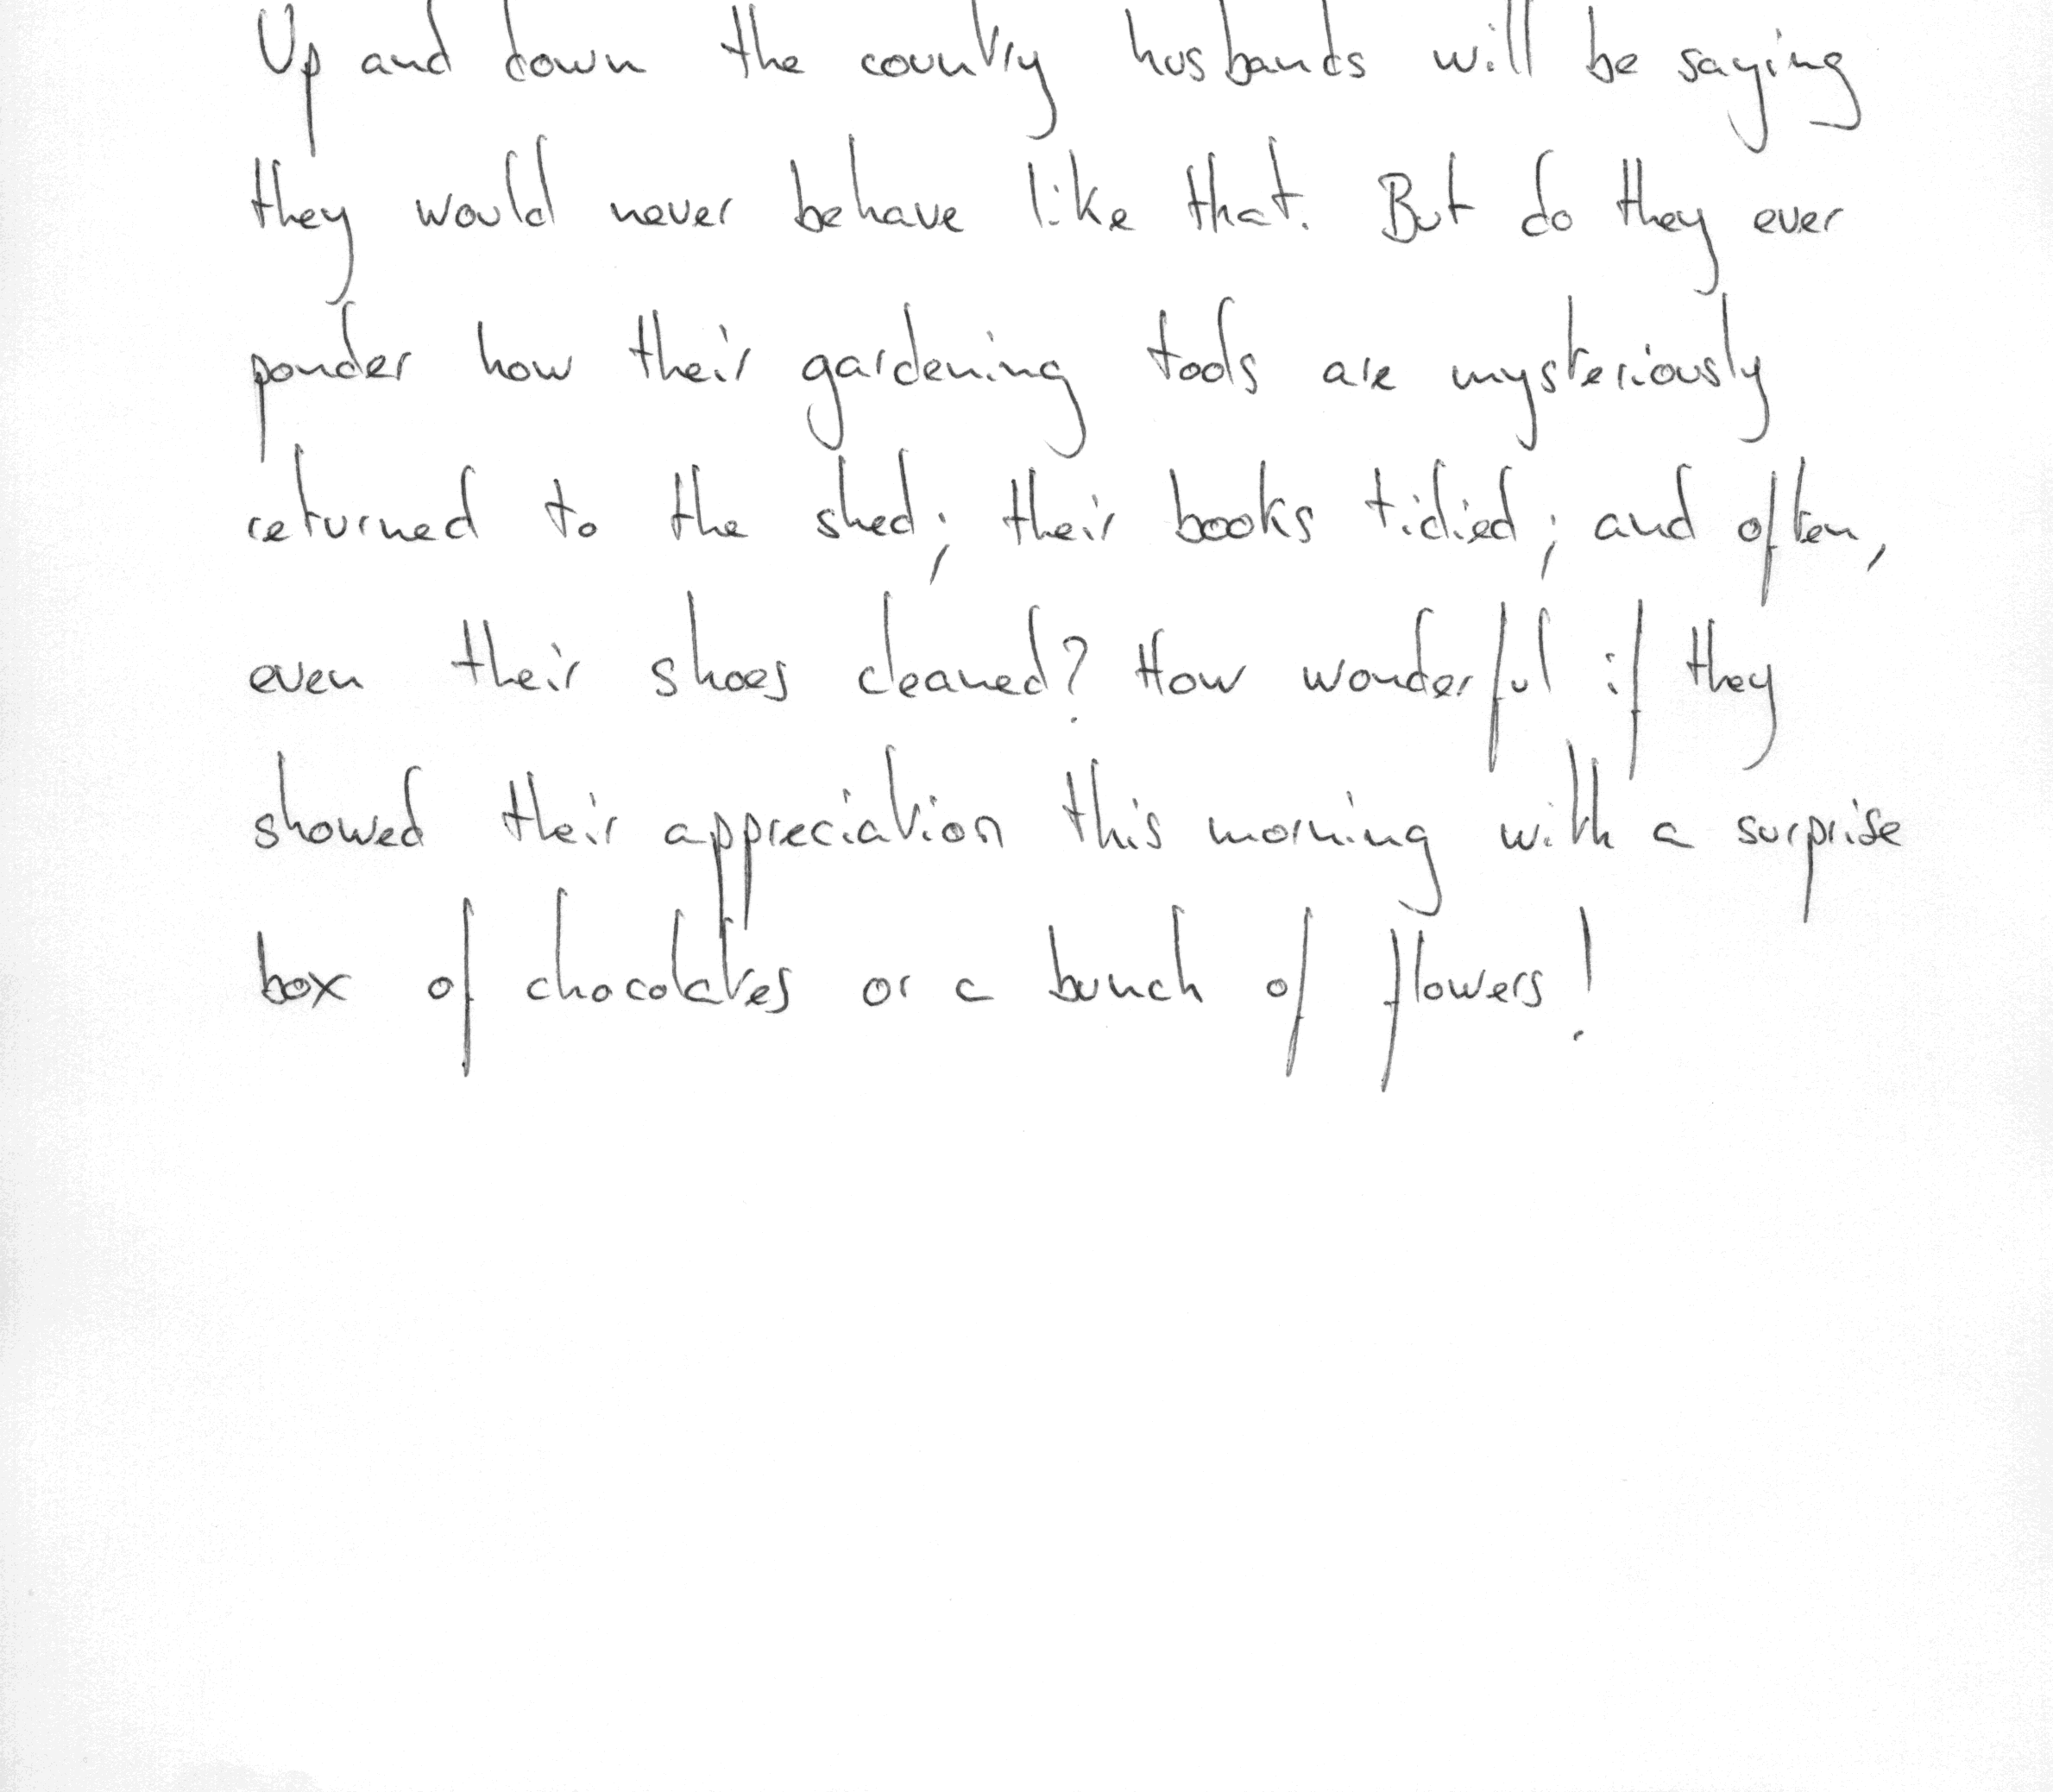 Up and down the country husbands will be saying
they would never behave like that. But do they ever
ponder how their gardening tools are mysteriously
returned to the shed; their books tidied; and often,
even their shoes cleaned? How wonderful if they
showed their appreciation this morning with a surprise
box of chocolates or a bunch of flowers!